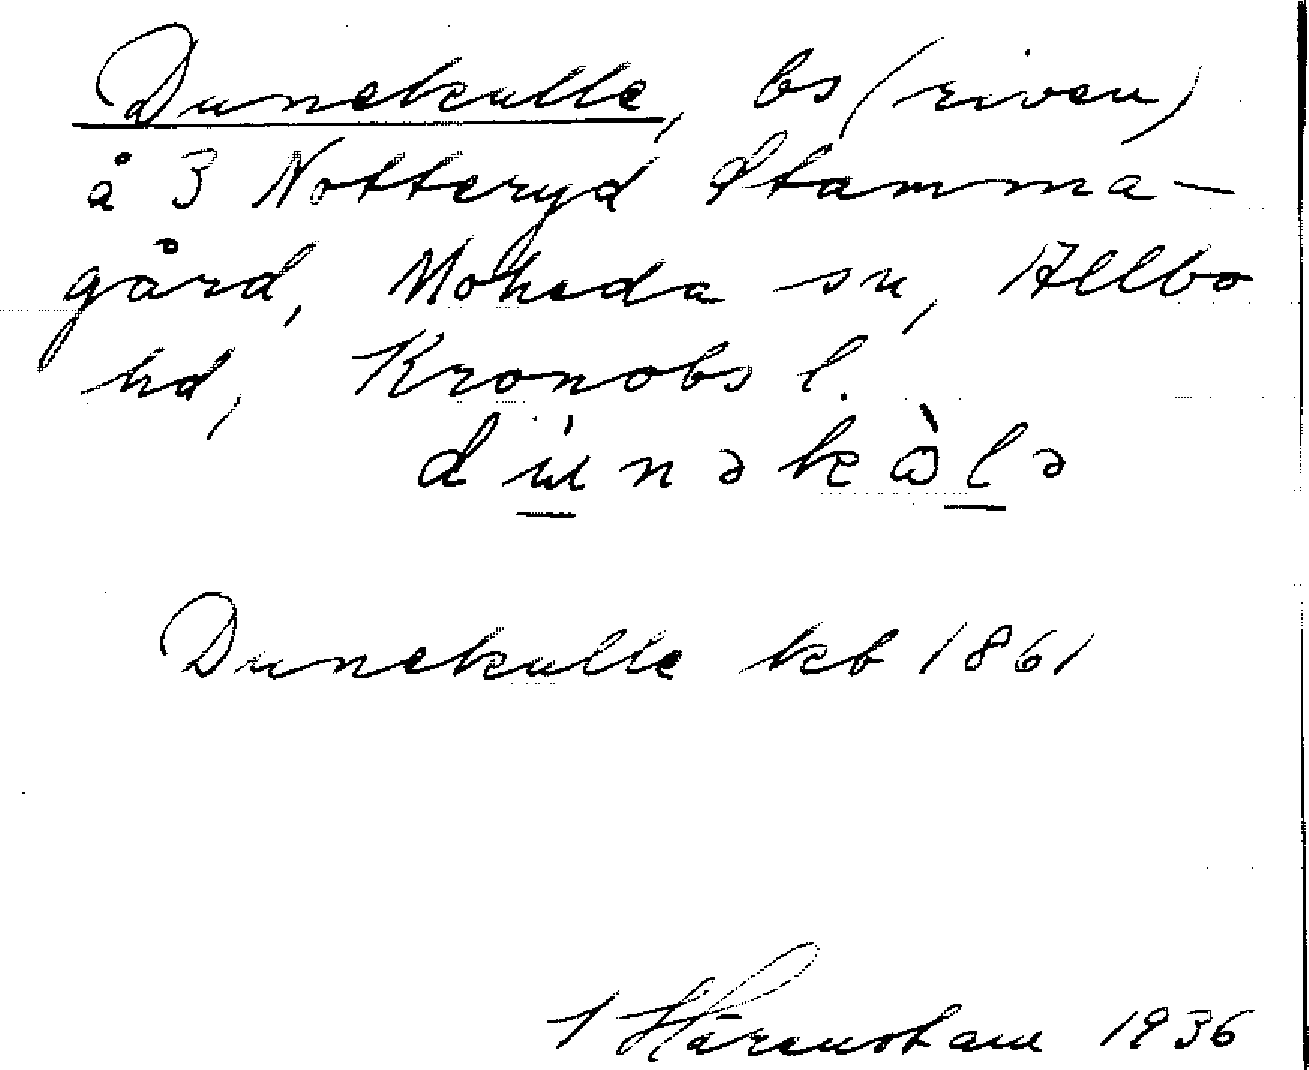 Dunekulle, bs (riven)
å 3 Notteryd Stamma-
gård, Moheda sn, Allbo
hd, Kronobs l.
Dunekulle kb 1861
1936